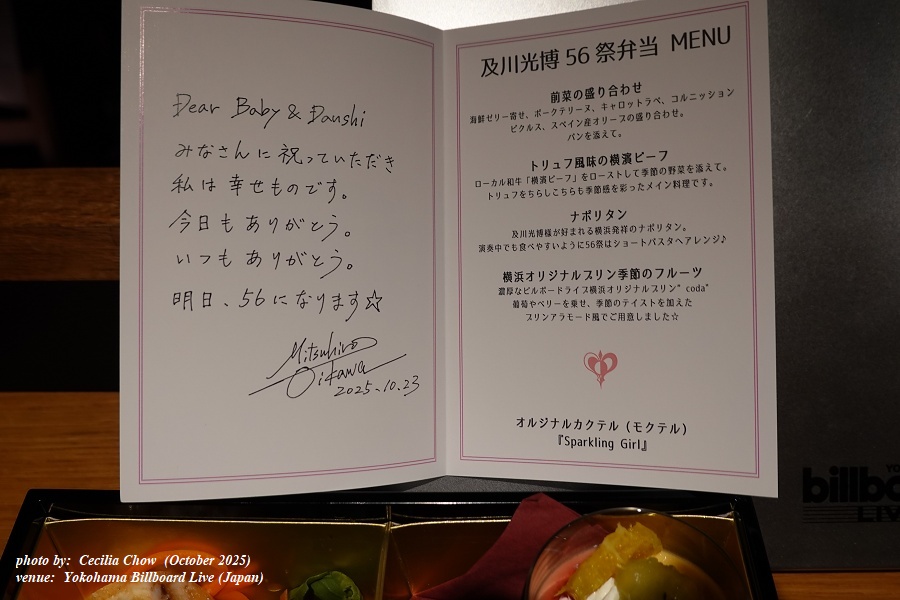 Dear Baby & Danshi
みなさんに祝っていただき
私は幸せものです。
今日もありがとう。
いつもありがとう。
明日、56になります☆
Mitsuhiro
Oikawa
2025.10.23
及川光博 56 祭弁当 MENU
前菜の盛り合わせ
海鮮ゼリー寄せ、ポークテリーヌ、キャロットラペ、コルニッション
ピクルス、スペイン産オリーブの盛り合わせ。
パンを添えて。
トリュフ風味の横濱ビーフ
ローカル和牛「横濱ビーフ」をローストして季節の野菜を添えて。
トリュフをちらしこちらも季節感を彩ったメイン料理です。
ナポリタン
及川光博様が好まれる横浜発祥のナポリタン。
演奏中でも食べやすいように56祭はショートパスタへアレンジ♪
横浜オリジナルプリン季節のフルーツ
濃厚なビルボードライブ横浜オリジナルプリン" coda"
葡萄やベリーを乗せ、季節のテイストを加えた
プリンアラモード風でご用意しました☆
オルジナルカクテル（モクテル）
『Sparkling Girl』
YO
billbo
LIV
photo by: Cecilia Chow (October 2025)
venue: Yokohama Billboard Live (Japan)